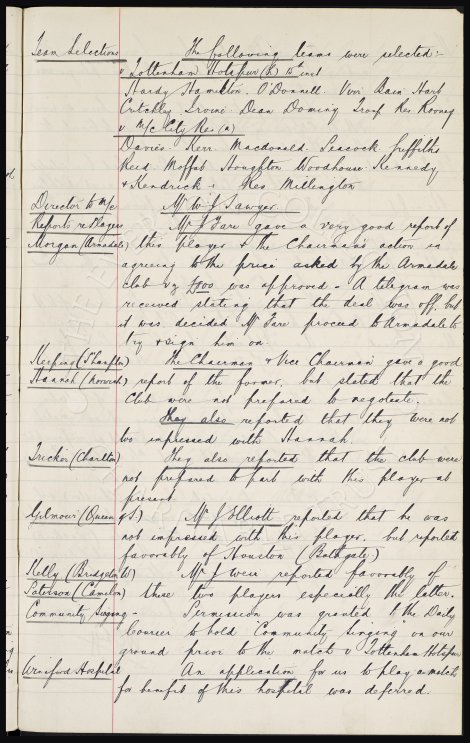 Team Selections The following teams were selected:-
v Tottenham Hotspur (h) 15th inst
Hardy Hamilton. O'Donnell. Virr Bain Hart
Critchley Irvine. Dean Dominy Troup Res Rooney
v M/c City Res (a)
Davies. Kerr. Macdonald. Peacock. Griffiths
Reid. Moffat Houghton Woodhouse Kennedy
& Kendrick. Res Millington
Director to M/c Mr W. J. Sawyer.
Reports re Players Mr J. Fare gave a very good report of
Morgan (Armadale) this player & the Chairman's action in
agreeing to the price asked by the Armadale
club viz £100 was approved. A telegram was
received stating that the deal was off, but
it was decided Mr Fare proceed to Armadale to
try & sign him on.
Keeping (S'hampton) The Chairman & Vice Chairman gave a good
Hannah (Norwich) report of the former, but stated that the
Club were not prepared to negotiate.
They also reported that they were not
too impressed with Hannah.
Tricker (Charlton) They also reported that the club were
not prepared to part with this player at
present
Gilmour (Queen of S.) Mr J Elliott reported that he was
not impressed with this player, but reported
favorably of Houston (Bathgate)
Kelly (Bridgeton W) Mr J Weir reported favorably of
Paterson (Camelon) these two players especially the latter.
Community Singing - Permission was granted to the Daily
Courier to hold "Community Singing" on our
ground prior to the match v Tottenham Hotspur
Hospital An application for us to play a match
for benefit of this hospital was deferred.